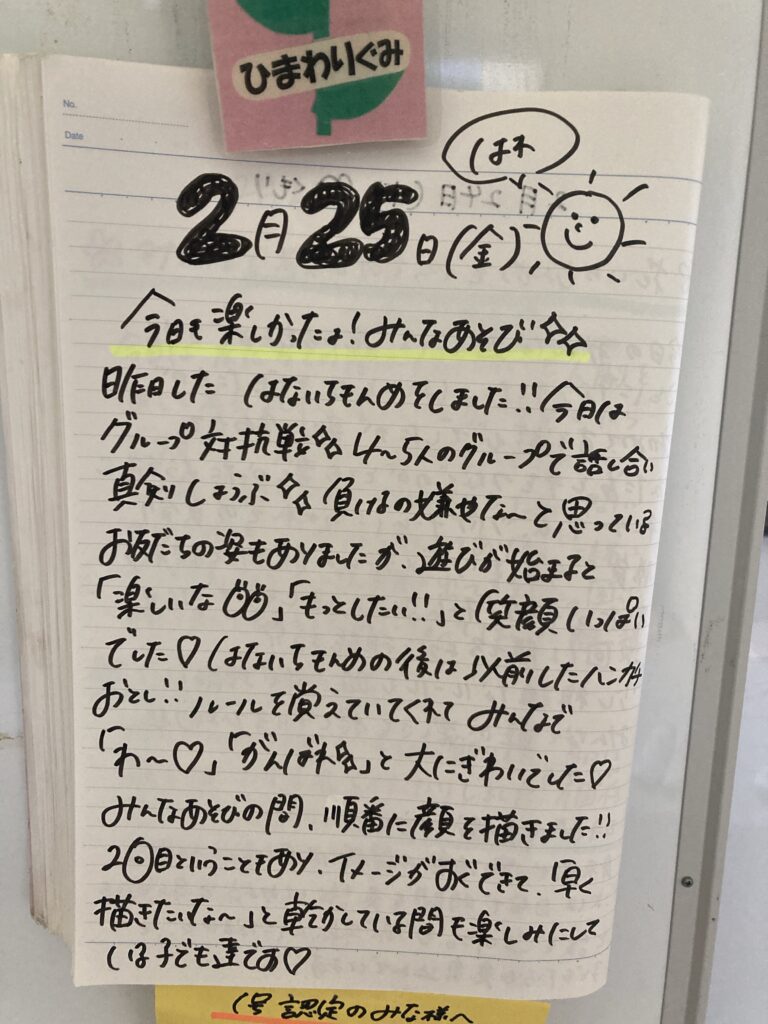 ひまわりぐみ
No.
Date
はれ
2月25日(金)
今日も楽しかったよ!みんなあそび
昨日した はないちもんめをしました!!今日は
グループ対抗戦 4〜5人のグループで話し合い
真剣しょうぶ 負けるの嫌やな〜と思っている
お友だちの姿もありましたが、遊びが始まると
「楽しいな」「もっとしたい!!」と笑顔いっぱい
でした♡はないちもんめの後は以前したハンカチ
おとし!!ルールを覚えていてくれて みんなで
「わ〜♡」「がんばれ」と大にぎわいでした♡
みんなあそびの間、順番に顔を描きました!!
2回目ということもあり、イメージがすぐできて、「早く
描きたいな〜」と乾かしている間も楽しみにして
いる子ども達です♡
1号認定のみな様へ